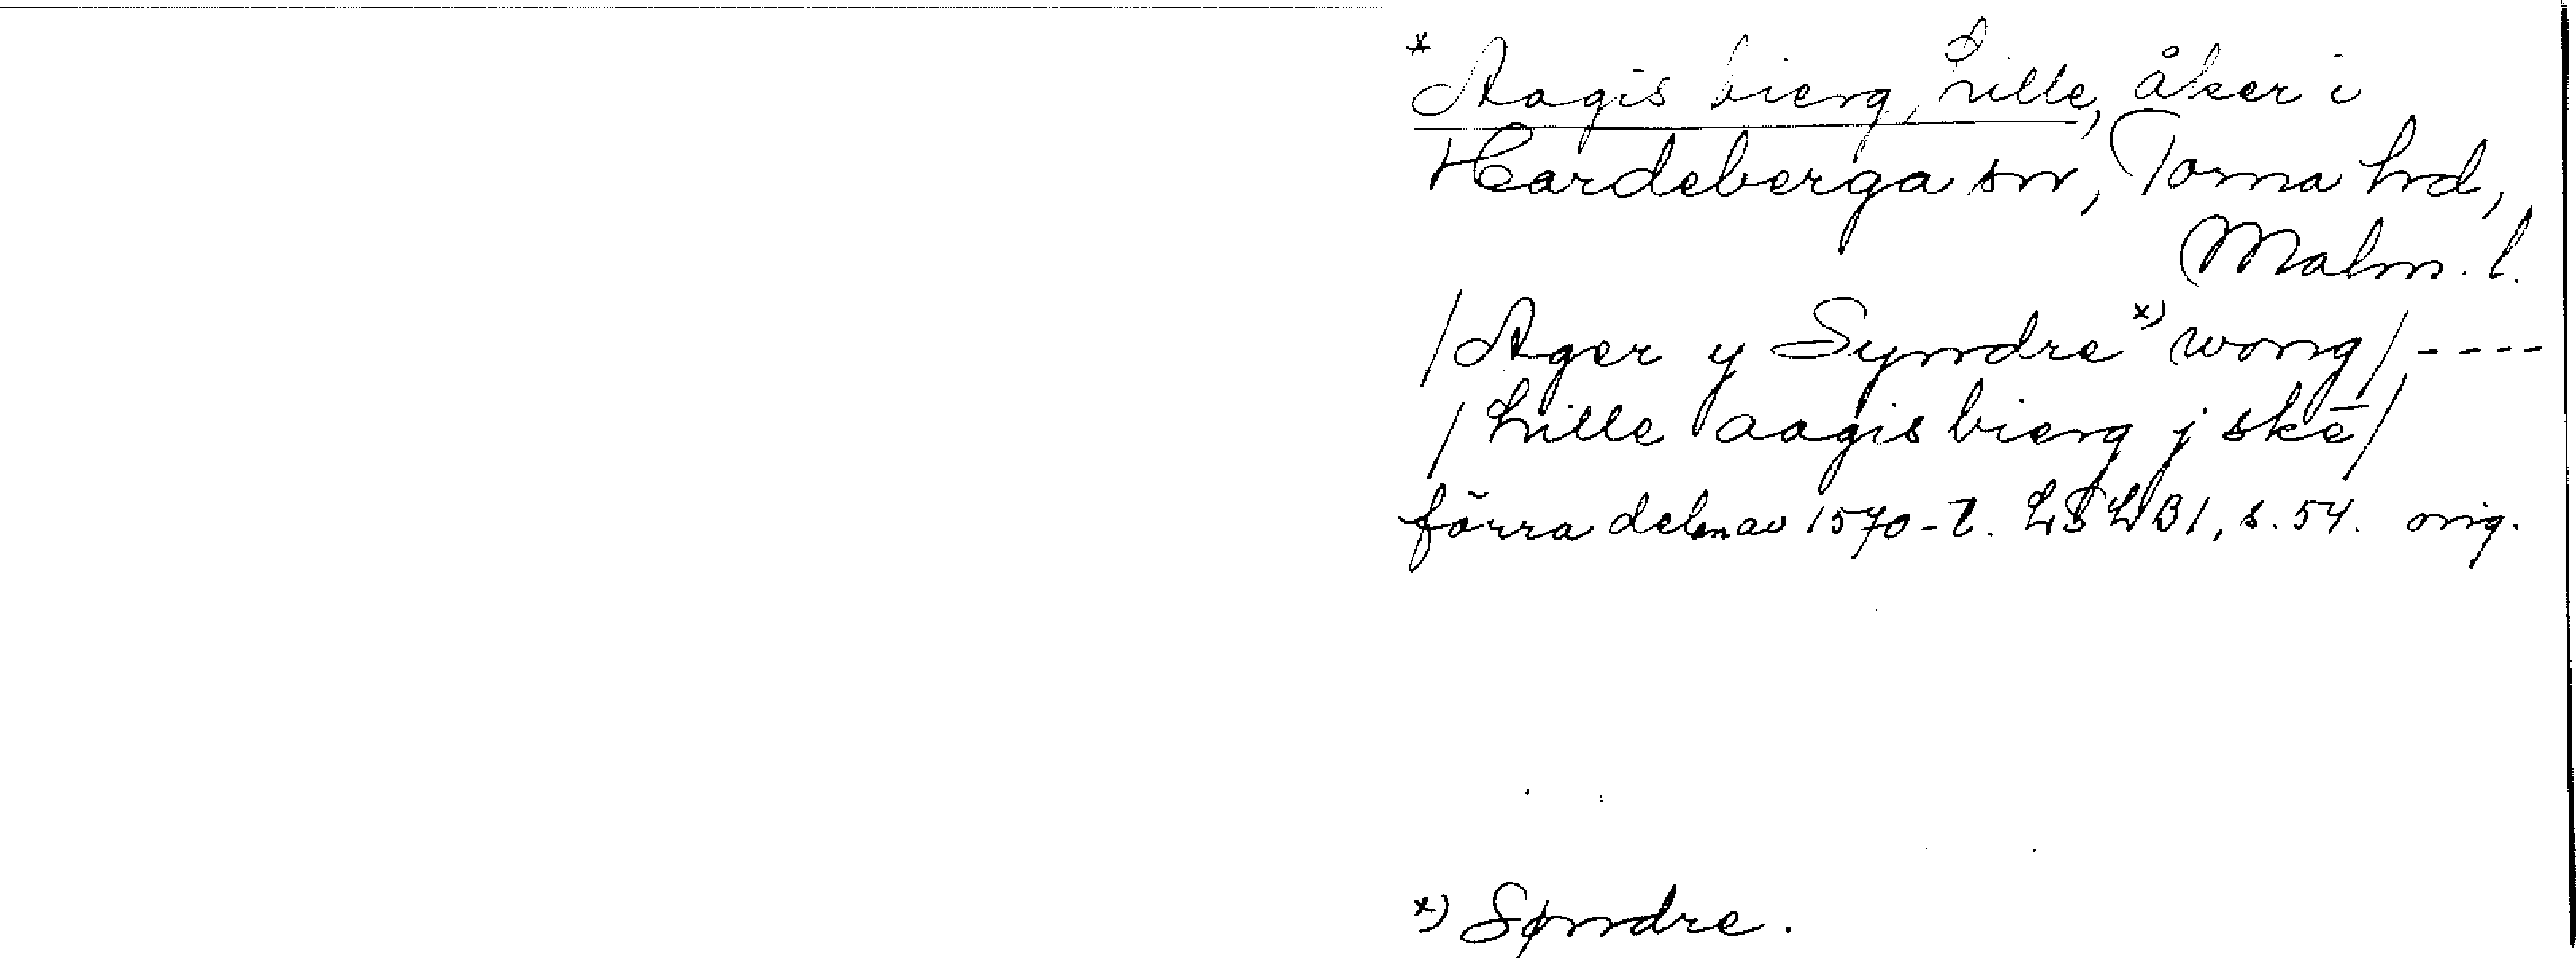 * Aagis bierg, Lille, åker i
Hardeberga sn, Torna hrd,
Malm. l.
/Ager y Syndre *) wong/ ----
/Lille aagis bierg j skē/
förra delen av 1570-t. LSLB1, s. 54. orig.
*) Søndre.